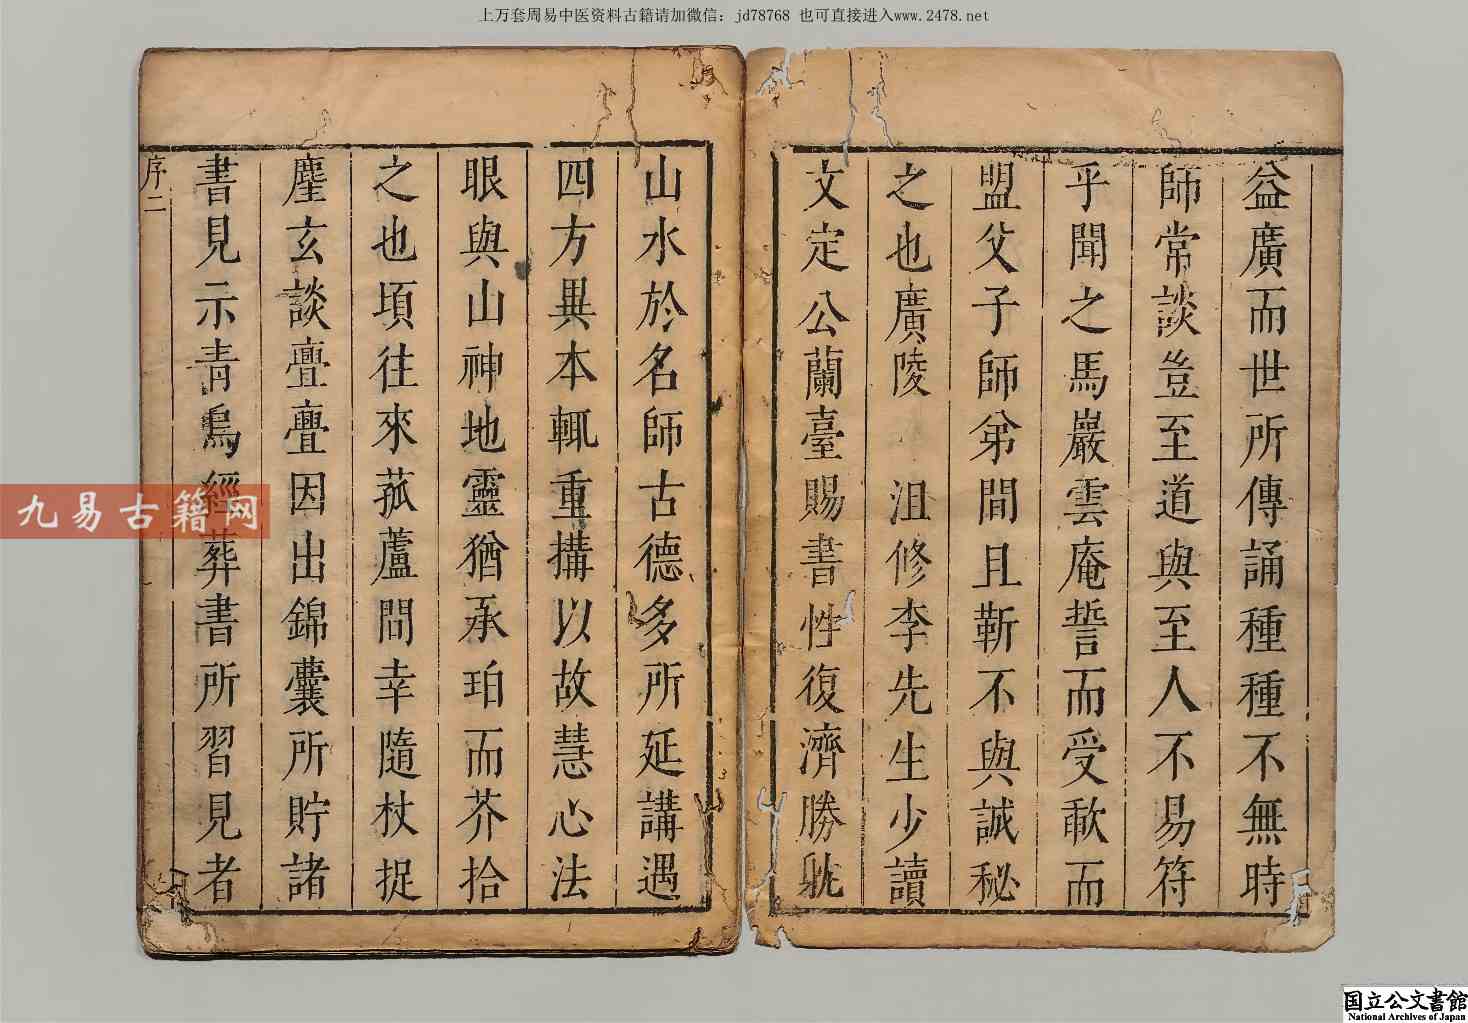 上万套周易中医资料古籍请加微信：jd78768 也可直接进入www.2478.net
益廣而世所傳誦種種不無時
師常談豈至道與至人不易符
乎聞之馬巖雲庵誓而受歃而
盟父子師弟間且靳不與誠秘
之也廣陵 沮修李先生少讀
文定公蘭臺賜書性復濟勝躭
山水於名師古德多所延講遇
四方異本輒重搆以故慧心法
眼與山神地靈猶承珀而芥拾
之也頃往來菰蘆間幸隨杖捉
麈玄談亹亹因出錦囊所貯諸
書見示青烏經葬書所習見者
序二
九易古籍网
国立公文書館
National Archives of Japan